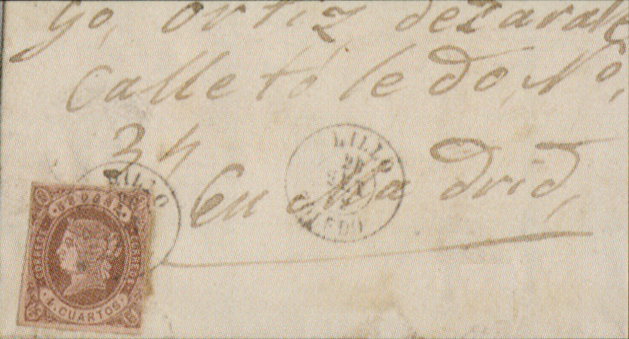 go, ortiz dezarate
Calle toledo, No,
34
En Madrid,
LILLO
28
TOLEDO
LILLO
CORREOS
4 CUARTOS